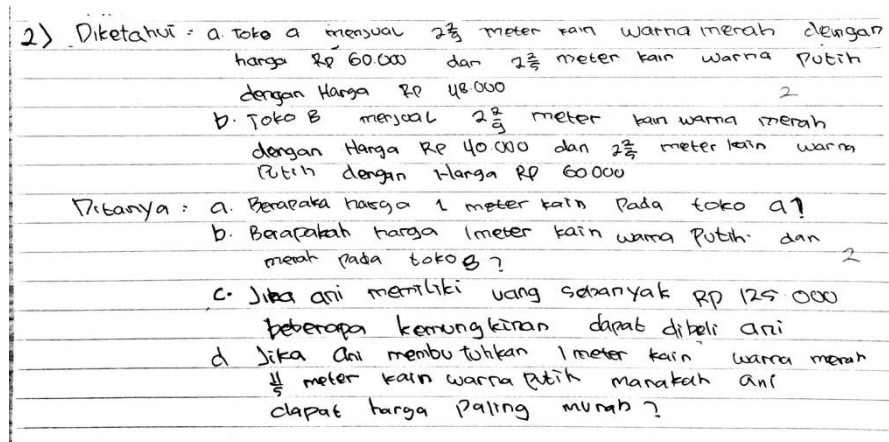 2) Diketahui : a. Toko a menjual 2 2/3 meter kain warna merah dengan
harga Rp 60.000 dan 2 2/5 meter kain warna putih
dengan Harga Rp 48.000 2
b. Toko B menjual 2 2/9 meter kain warna merah
dengan Harga Rp 40 000 dan 2 2/5 meter kain warna
Putih dengan Harga RP 60 000
Ditanya : a. Berapaka harga 1 meter kain Pada toko a?
b. Berapakah harga 1meter kain warna Putih. dan
merah pada toko B? 2
c. Jika ani memiliki uang sebanyak RP 125 000
beberapa kemungkinan dapat dibeli ani
d Jika Ani membutuhkan 1 meter kain warna merah
11/5 meter kain warna Putih manakah ani
dapat harga Paling murah?